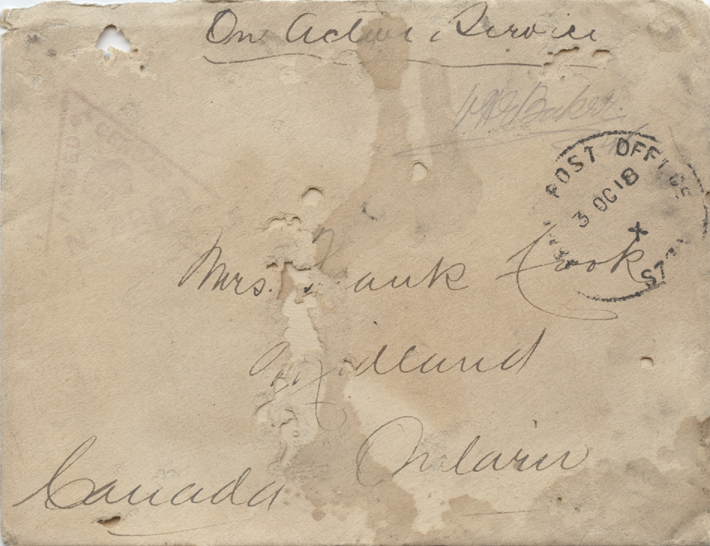 On Active Service
Baker
POST OFFICE
3 OC 18
X
Mrs. Frank Cook
Midland
Ontario
Canada